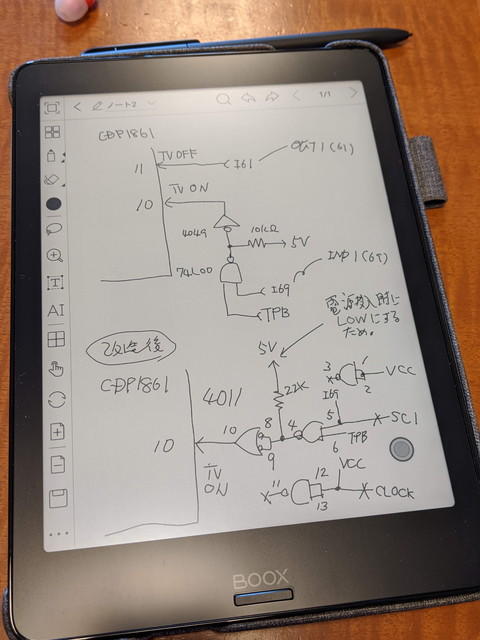 ノート2
1/1
CDP1861
TV OFF
11
I61
OUT1(61)
TV ON
10
4049
10kΩ
5V
74L00
INP1(69)
I69
TPB
電源投入時に
LOWにする
ため。
改造後
5V
CDP1861
4011
22K
3
1
2
VCC
I69
10
8
9
4
5
6
SC1
TPB
10
TV
ON
VCC
11
12
13
CLOCK
BOOX